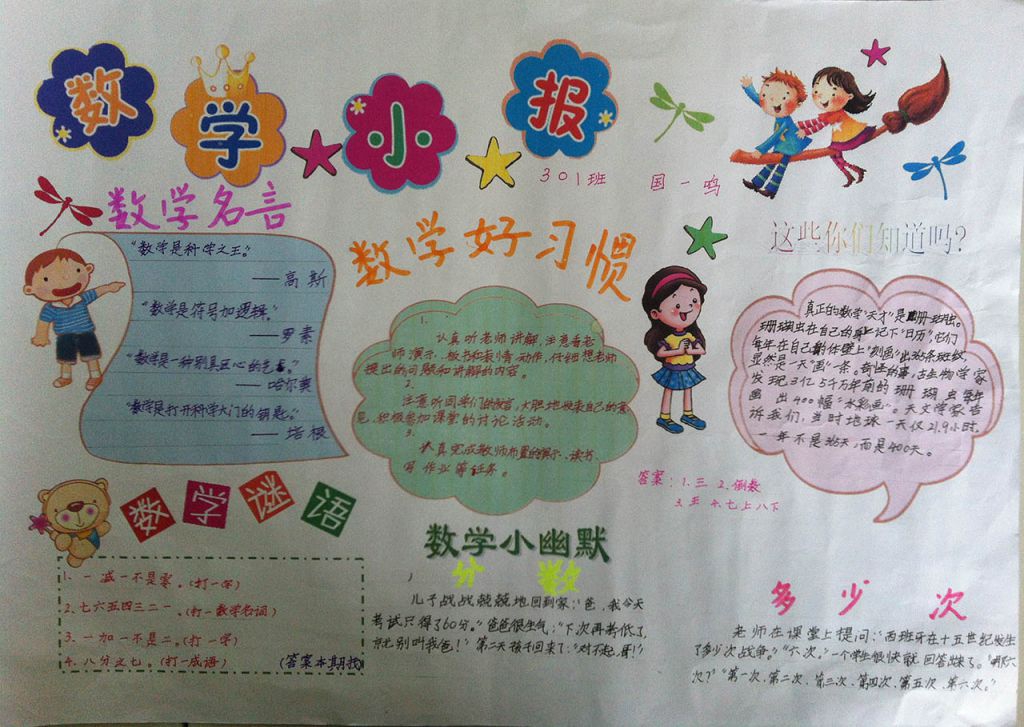 数学小报
301班 国一鸣
数学名言
"数学是科学之王。"
——高斯
"数学是符号加逻辑。"
——罗素
"数学是一种别具匠心的艺术。"
——哈尔莫
"数学是打开科学大门的钥匙。"
——培根
数学好习惯
1.
认真听老师讲解,注意看老
师演示、板书和表情、动作,仔细想老师
提出的问题和讲解的内容。
2.
注意听同学们的发言,大胆地发表自己的意
见,积极参加课堂的讨论活动。
3.
认真完成教师布置的演示、读书、
写作业等任务。
这些你们知道吗?
真正的数学"天才"是珊瑚虫。
珊瑚虫在自己的身上记下"日历",它们
每年在自己的体壁上"刻画"出365条斑纹,
显然是一天"画"一条。奇怪的事,古生物学家
发现3亿5千万年前的珊瑚虫每年
画出400幅"水彩画"。天文学家告
诉我们,当时地球一天仅21.9小时,
一年不是365天,而是400天。
答案:1.三 2.倒数
3.王 4.七上八下
数学谜语
1.一减一不是零。(打一字)
2.七六五四三二一。(打一数学名词)
3.一加一不是二。(打一字)
4.八分之七。(打一成语) (答案本期找)
数学小幽默
分数
儿子战战兢兢地回到家:"爸,我今天
考试只得了60分。"爸爸很生气:"下次再考低了,
就别叫我爸!"第二天孩子回来了:"对不起,哥!"
多少次
老师在课堂上提问:"西班牙在十五世纪发生
了多少次战争。""六次。"一个学生很快就回答出来了。"哪六
次?""第一次、第二次、第三次、第四次、第五次、第六次。"